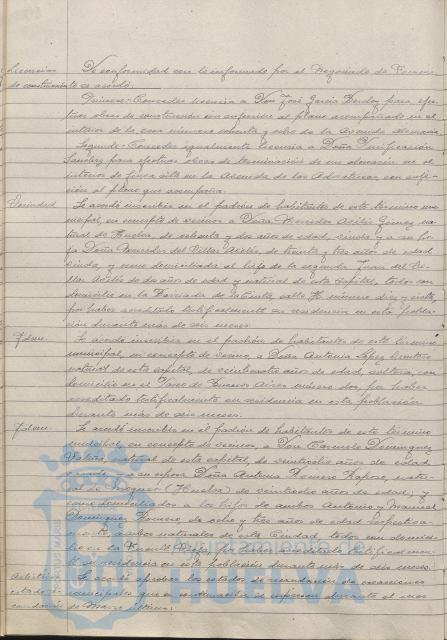 Licencias De conformidad con lo informado por el Negociado de Fomento
de construcción se acordó:
Primero - Conceder licencia a Don José García para efec-
tuar obras de construcción con sujeción al plano acompañado en el
interior de la casa número ochenta y ocho de la Avenida
Segundo - Conceder igualmente licencia a Doña Purificación
Sánchez para efectuar obras de terminación de un almacén en el
interior de finca sita en la Avenida de los con suje-
ción al plano que acompaña.
Vecindad Se acordó inscribir en el padrón de habitantes de este término mu-
nicipal, en concepto de vecinos a Doña Mercedes Avilés Gómez na-
tural de Huelva, de ochenta y dos años de edad, viuda y a su hi-
ja Doña Mercedes del Villar Avilés, de treinta y tres años de edad
viuda, y como domiciliado al hijo de la segunda Juan del Vi-
llar Avilés de dos años de edad y natural de esta capital, todos con
domicilio en la Barriada de calle H número diez y siete,
por haber acreditado testificalmente su residencia en esta pobla-
ción durante más de seis meses.
Idem. Se acordó inscribir en el padrón de habitantes de este término
municipal, en concepto de vecino, a Don Antonio López
natural de esta capital, de veinticuatro años de edad, soltero, con
domicilio en el Paseo de Buenos Aires número dos, por haber
acreditado testificalmente su residencia en esta población
durante más de seis meses.
Idem. Se acordó inscribir en el padrón de habitantes de este término
municipal, en concepto de vecinos, a Don Carmelo Domínguez
natural de esta capital, de veintiocho años de edad
casado y a su esposa Doña Antonia Romero Raposo, natu-
ral de Moguer (Huelva) de veintiocho años de edad, y
como domiciliados a los hijos de ambos Antonio y Manuel
Domínguez Romero, de ocho y tres años de edad respectiva-
mente, ambos naturales de esta Ciudad, todos con domici-
lio en la Fuente Vieja, por haber acreditado testificalmen-
te su residencia en esta población durante más de seis meses.
Arbitrios Se acordó aprobar los estados de recaudación de exacciones
estados municipales que a continuación se expresan durante el mes
HUELVA